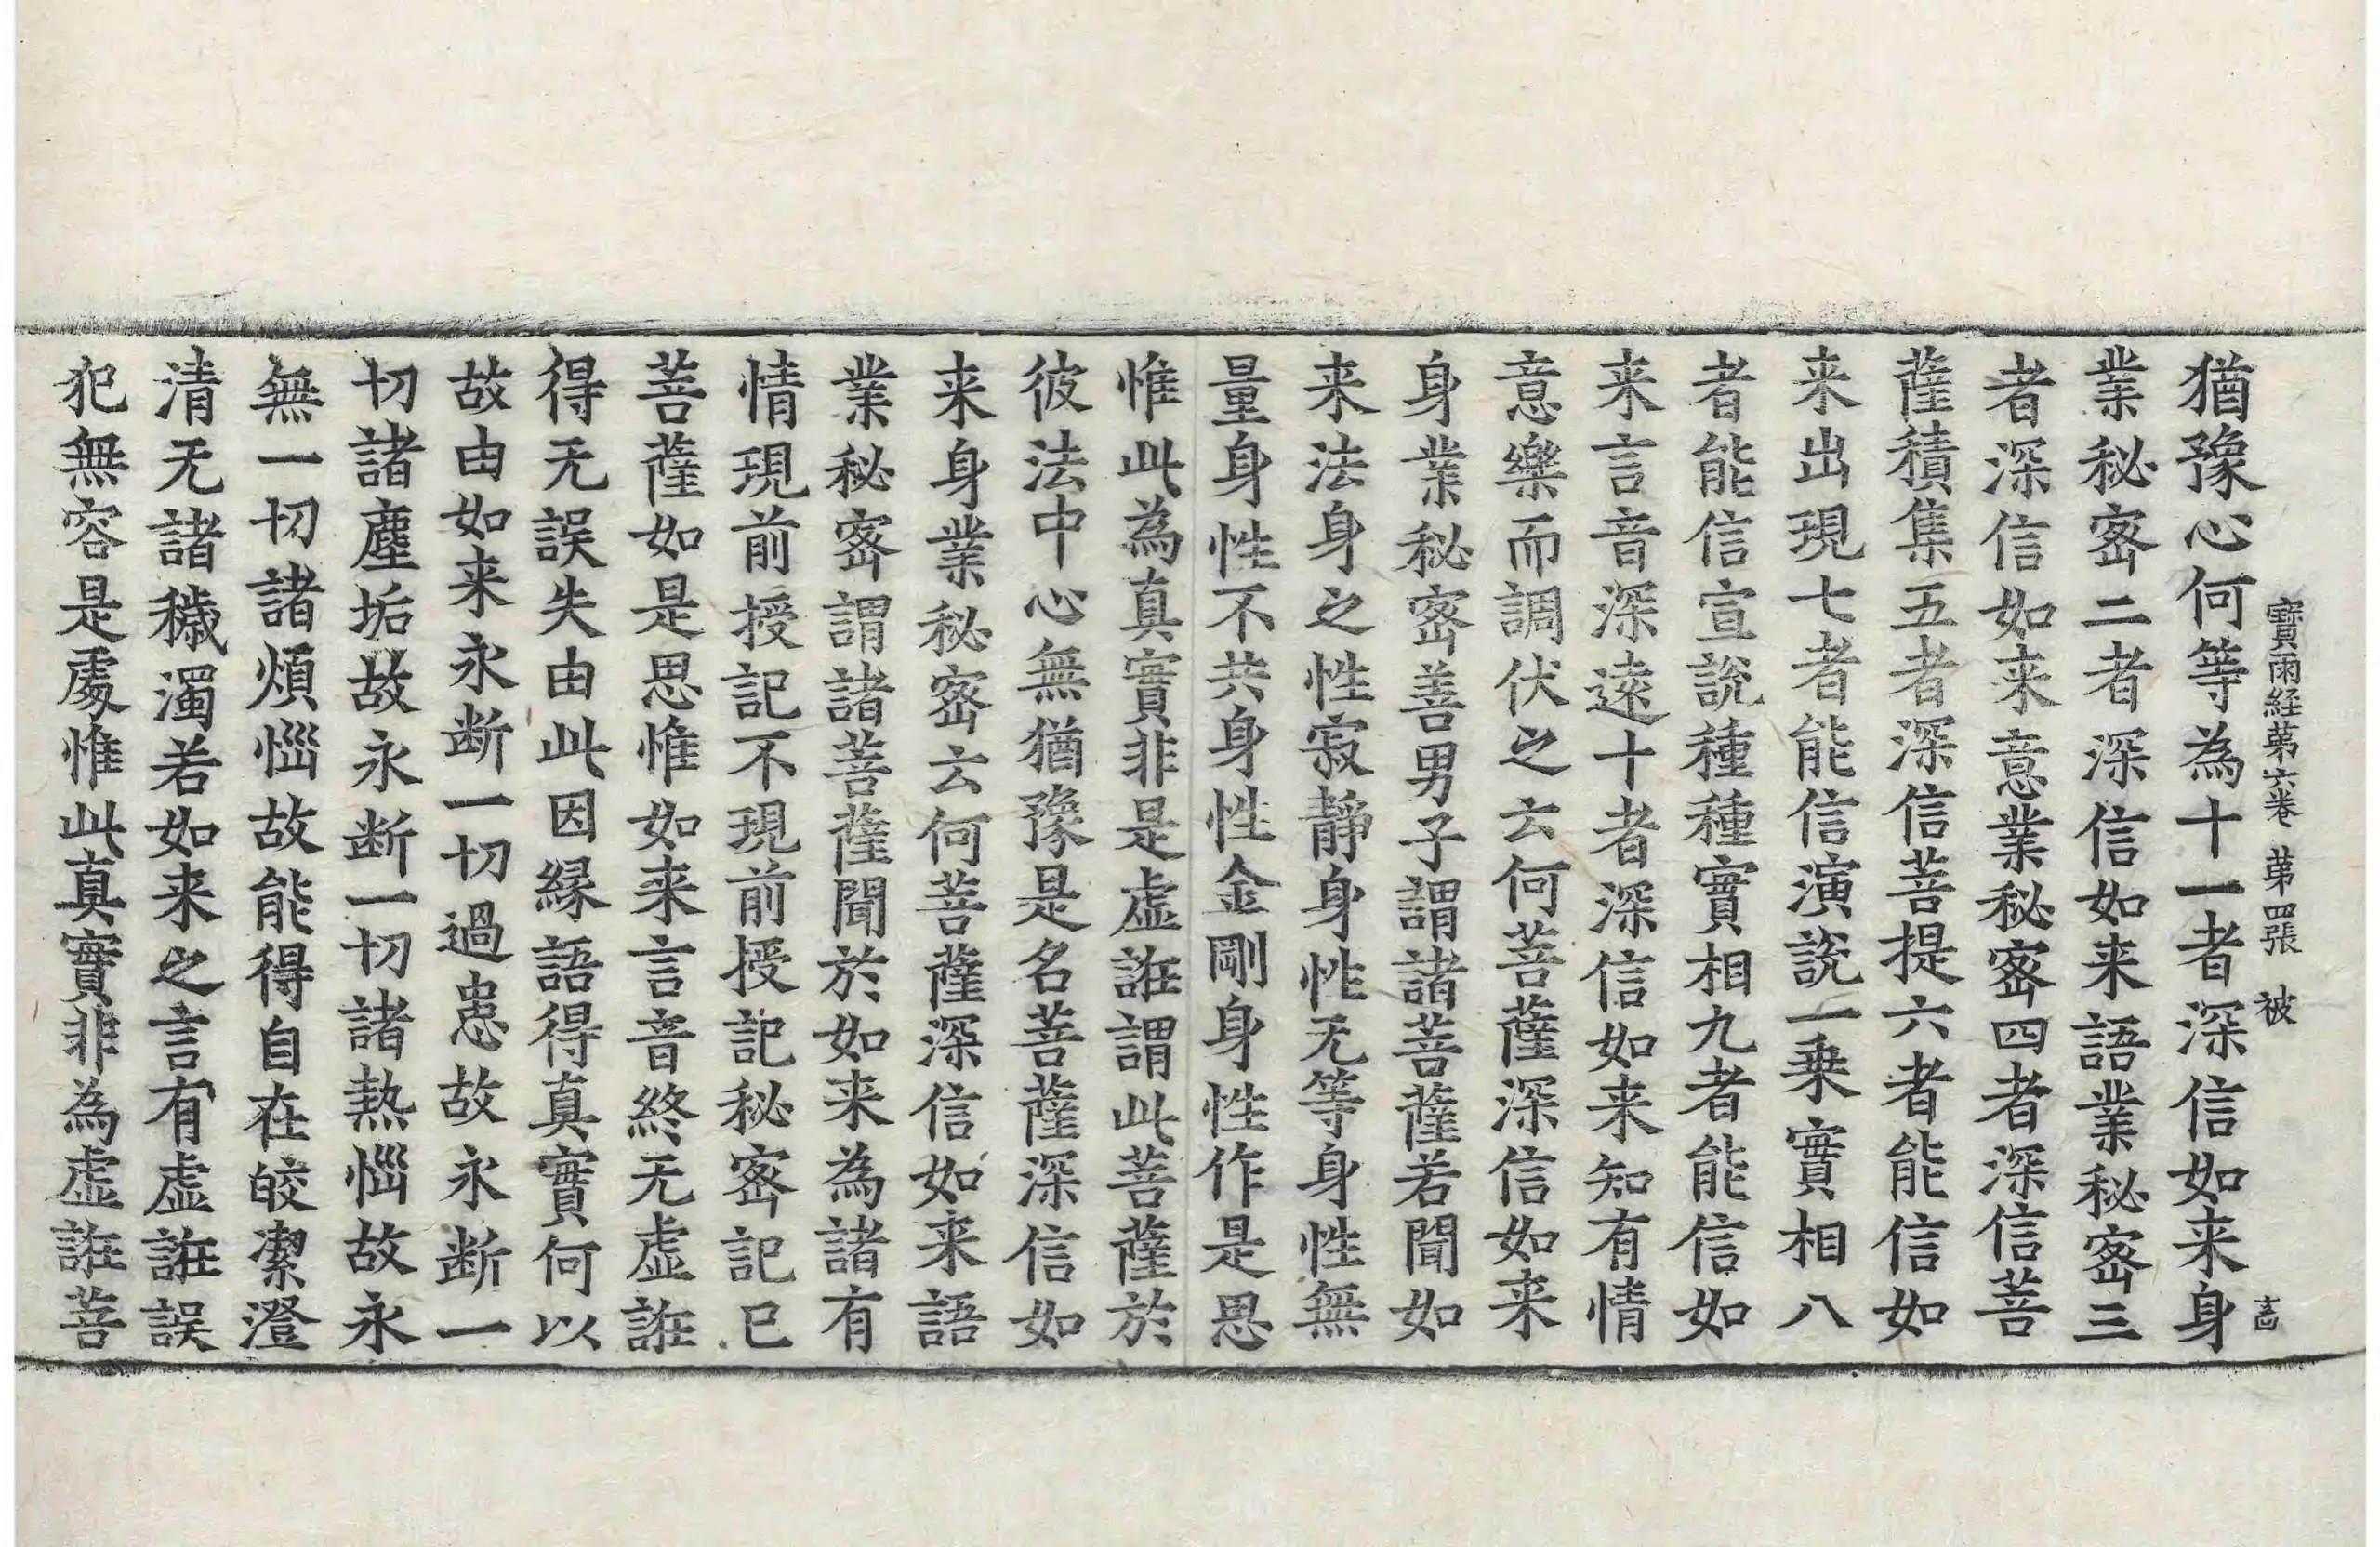 寶雨経苐六巻 苐四張 被
猶豫心何等為十一者深信如来身
業秘密二者深信如来語業秘密三
者深信如来意業秘密四者深信菩
薩積集五者深信菩提六者能信如
来出現七者能信演説一乗實相八
者能信宣說種種實相九者能信如
来言音深遠十者深信如来知有情
意樂而調伏之云何菩薩深信如来
身業秘密善男子謂諸菩薩若聞如
来法身之性寂靜身性无等身性無
量身性不共身性金剛身性作是思
惟此為真實非是虛誑謂此菩薩於
彼法中心無猶豫是名菩薩深信如
来身業秘密云何菩薩深信如来語
業秘密謂諸菩薩聞於如来為諸有
情現前授記不現前授記秘密記已
菩薩如是思惟如来言音終无虛誑
得无誤失由此因縁語得真實何以
故由如来永断一切過患故永断一
切諸塵垢故永断一切諸熱惱故永
無一切諸煩惱故能得自在皎潔澄
清无諸穢濁若如来之言有虛誑誤
犯無容是處惟此真實非為虛誑菩